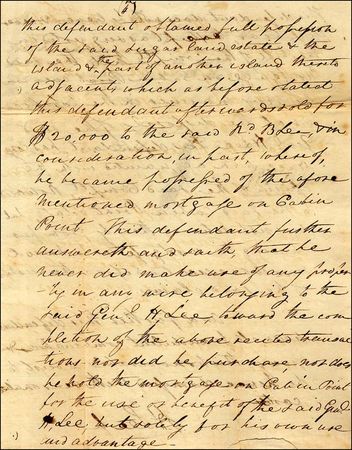 this defendant obtained full possession
of the said Sugar land estate & the
island & the part of another island thereto
adjacent, which as before stated
this defendant afterwards sold for
$20,000 to the said Rd B Lee, & in
consideration, in part, whereof,
he became possessed of the afore
mentioned mortgage on Cabin
Point. This defendant further
answereth and saith, that he
never did make use of any proper
-ty in any wise belonging to the
said Genl. H Lee, toward the com
pletion of the above recited transac
tions nor did he purchase, nor does
he hold the mortgage on Cabin Point
for the use or benefit of the said Genl
H Lee but solely for his own use
and advantage -